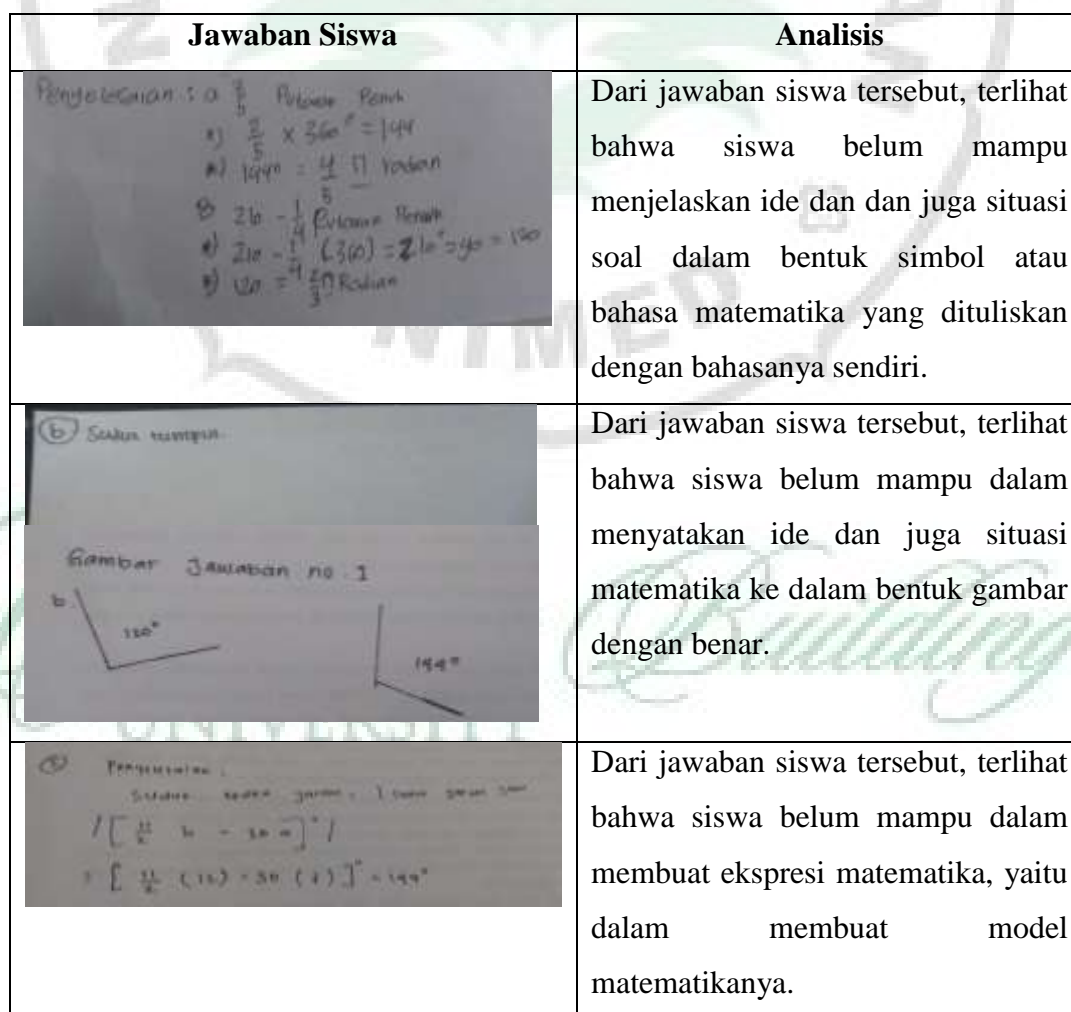 Jawaban Siswa
Analisis
Penyelesaian : a 2/5 Putaran Penuh
2/5 x 360° = 144
144° = 4/5 π radian
210 - 1/4 Putaran Penuh
210 - 1/4 (360) = 210° - 90 = 120
120 = 2/3 π Radian
Dari jawaban siswa tersebut, terlihat
bahwa siswa belum mampu
menjelaskan ide dan dan juga situasi
soal dalam bentuk simbol atau
bahasa matematika yang dituliskan
dengan bahasanya sendiri.
b Sudut tumpul.
Gambar Jawaban no. 1
b.
120°
144°
Dari jawaban siswa tersebut, terlihat
bahwa siswa belum mampu dalam
menyatakan ide dan juga situasi
matematika ke dalam bentuk gambar
dengan benar.
Penyelesaian :
Sudut jarum
Dari jawaban siswa tersebut, terlihat
bahwa siswa belum mampu dalam
membuat ekspresi matematika, yaitu
dalam membuat model
matematikanya.
UNIVERSITY
Building